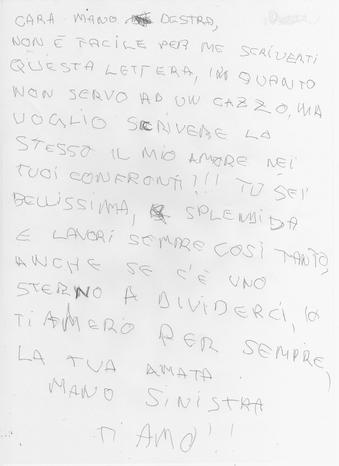 CARA MANO DESTRA,
NON È FACILE PER ME SCRIVERTI
QUESTA LETTERA, IN QUANTO
NON SERVO AD UN CAZZO, MA
VOGLIO SCRIVERE LO
STESSO IL MIO AMORE NEI
TUOI CONFRONTI!!! TU SEI
BELLISSIMA, SPLENDIDA
E LAVORI SEMPRE COSÌ TANTO,
ANCHE SE C'È UNO
STERNO A DIVIDERCI, IO
TI AMERÒ PER SEMPRE,
LA TUA AMATA
MANO SINISTRA
TI AMO!!